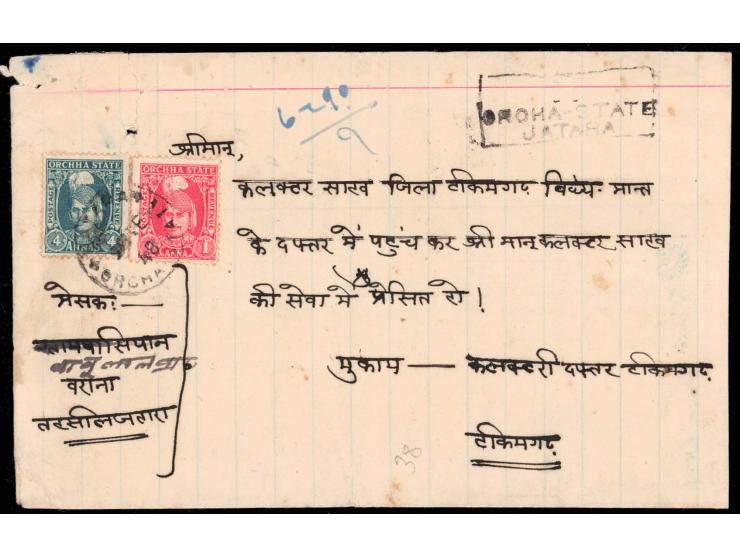 ORCHA-STATE
JATARA
श्रीमान्,
कलक्टर साहब जिला टीकमगढ़ विंध्य प्रान्त
के दफ्तर में पहुंच कर श्री मान् कलक्टर साहब
की सेवा में प्रेसित हो।
मुकाम — कलक्टरी दफ्तर टीकमगढ़
टीकमगढ़
ORCHHA STATE
POSTAGE
REVENUE
4 ANNAS 4
ORCHHA STATE
POSTAGE
REVENUE
1 ANNA 1
प्रेसक: —
बाबूलाल
वराना
तहसील जतारा
38